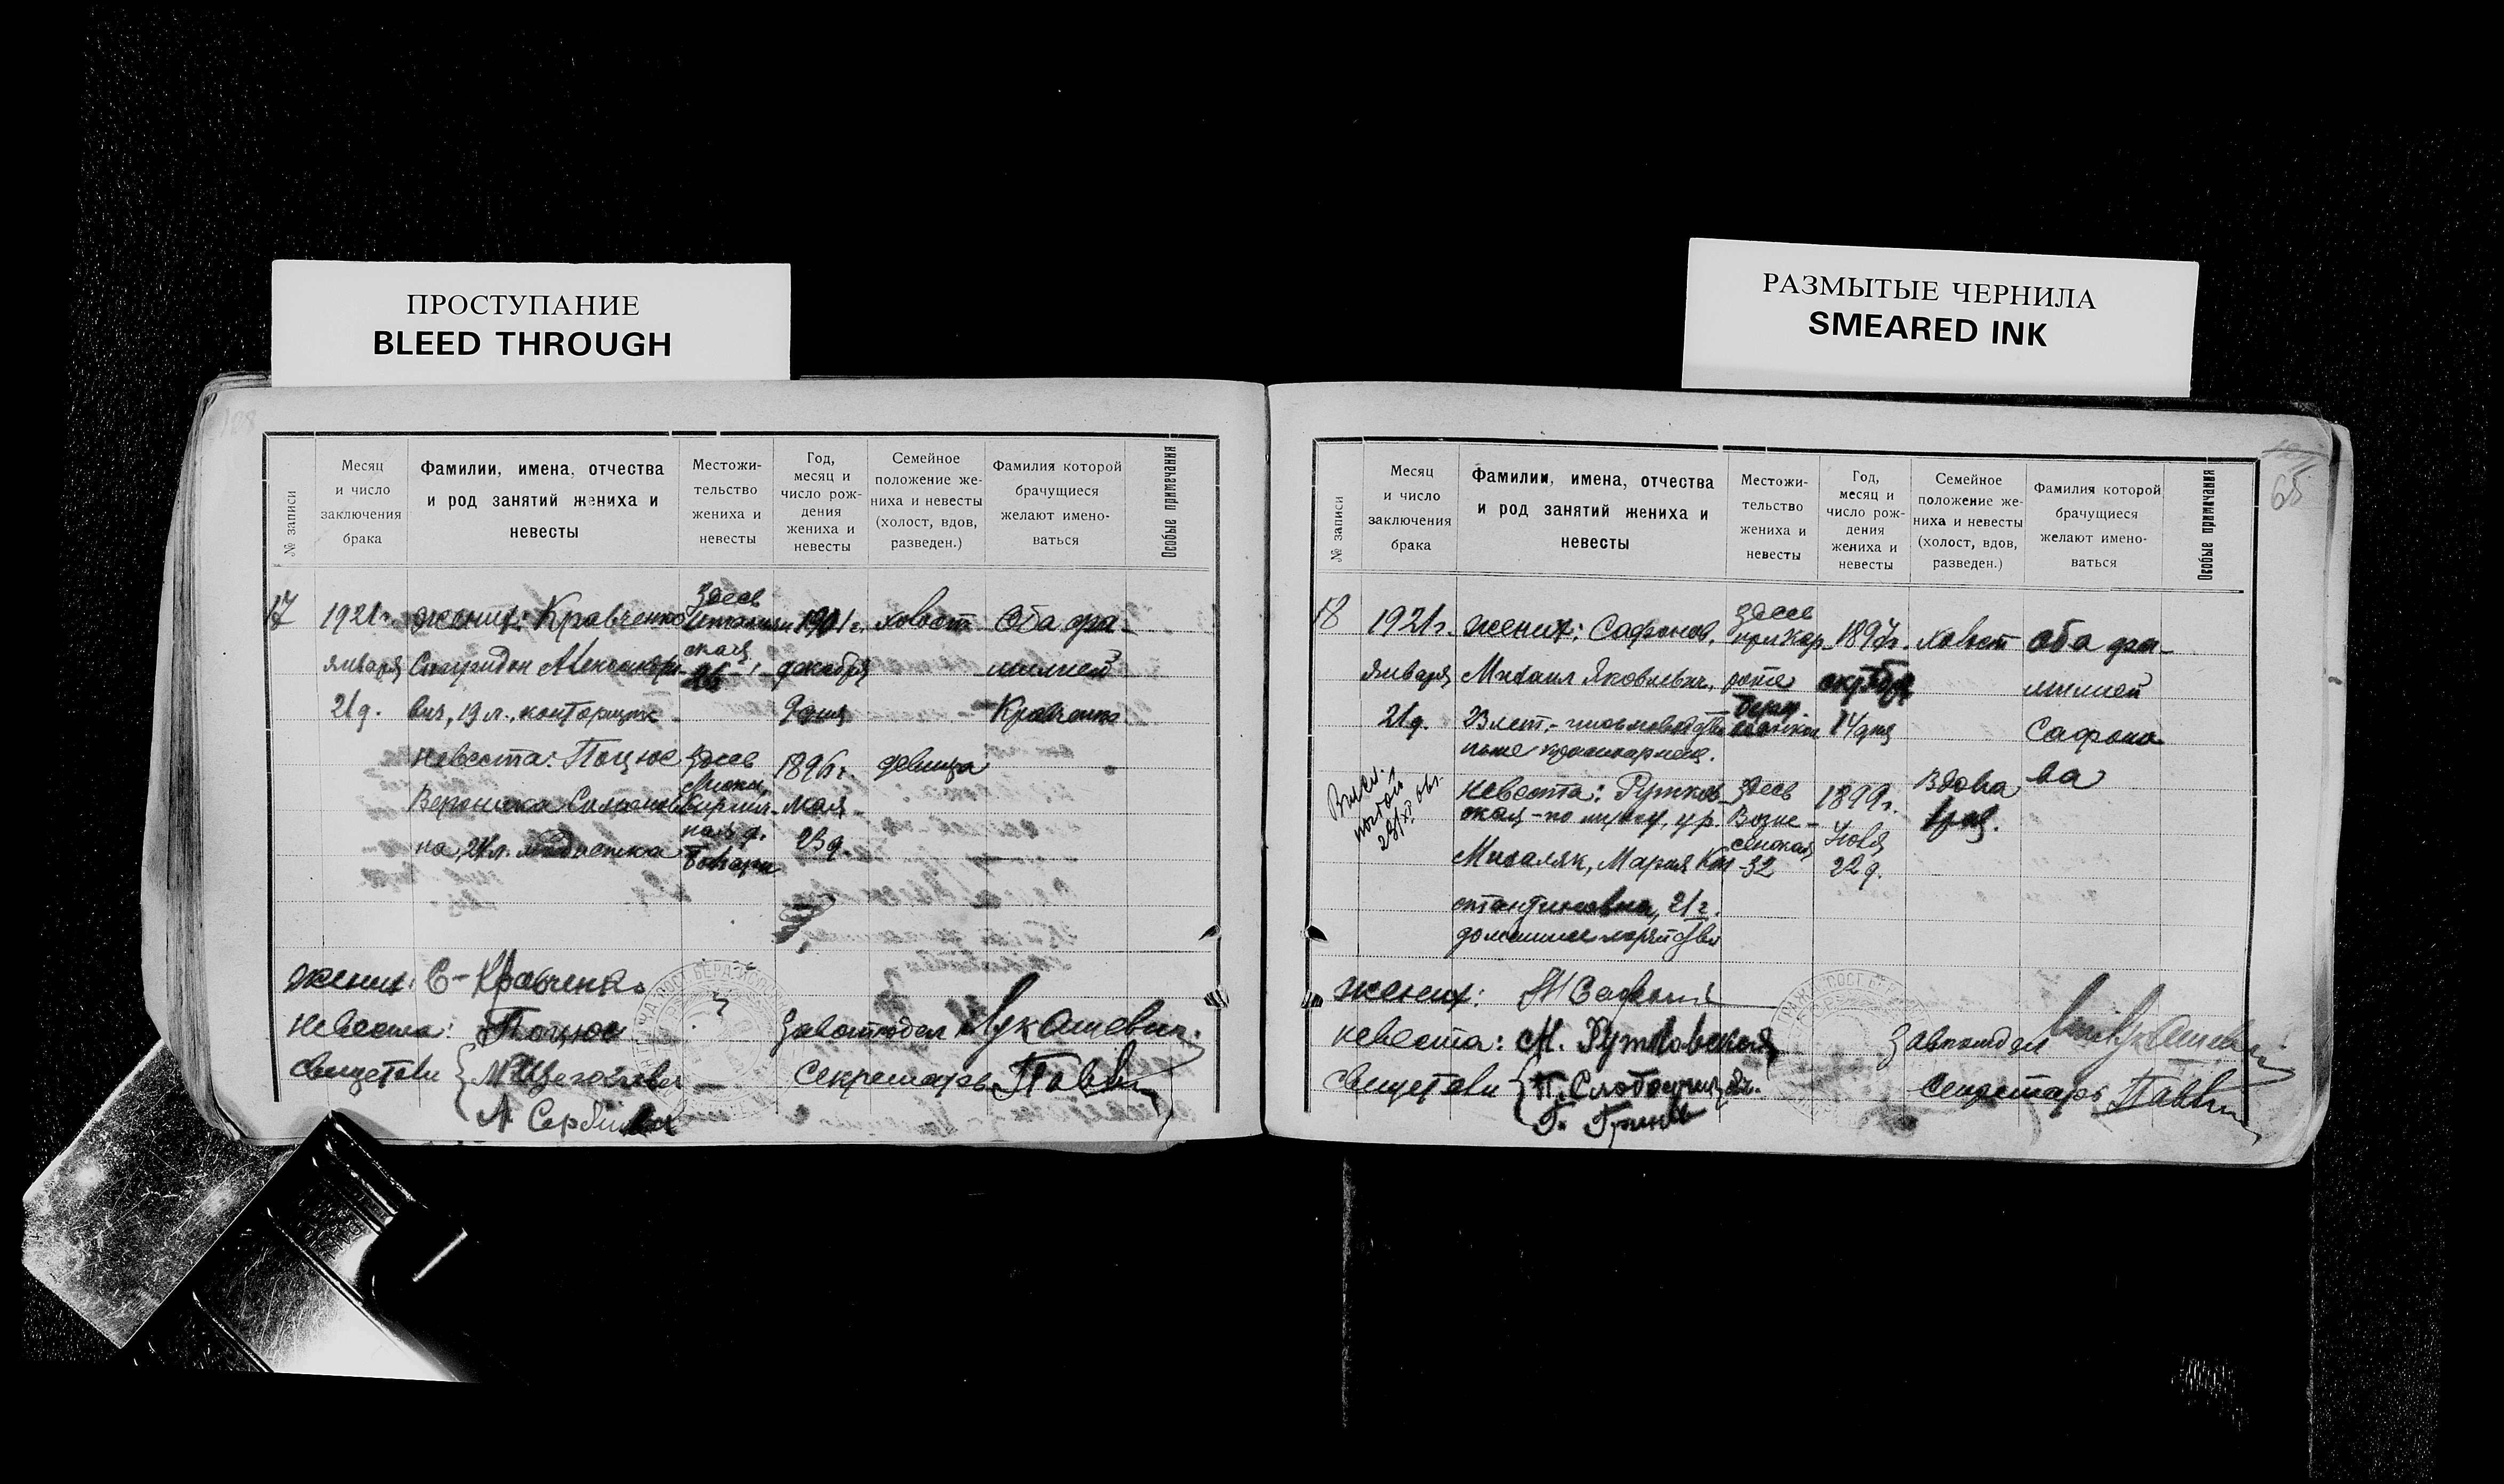 ПРОСТУПАНИЕ
BLEED THROUGH
РАЗМЫТЫЕ ЧЕРНИЛА
SMEARED INK
128
№ записи
Месяц
и число
заключения
брака
Фамилии, имена, отчества
и род занятий жениха и
невесты
Местожи-
тельство
жениха и
невесты
Год,
месяц и
число рож-
дения
жениха и
невесты
Семейное
положение же-
ниха и невесты
(холост, вдов,
разведен.)
Фамилия которой
брачущиеся
желают имено-
ваться
Особые примечания
17
1921 г.
января
21 д.
жених: Кравченко
Спиридон Александро-
вич, 19 л., конторщик
здесь
Итальян
ская
26
1901 г.
декабря
9 дня
холост
Оба фа-
милией
Кравченко
невеста: Поцюс
Вероника
на, 24 л.
здесь
1896 г.
мая
23 д.
девица
жених: С. Кравченко
невеста: Поцюс
свидетели
А Сербин
Завотдел Лукашевич.
Секретарь
65
№ записи
Месяц
и число
заключения
брака
Фамилии, имена, отчества
и род занятий жениха и
невесты
Местожи-
тельство
жениха и
невесты
Год,
месяц и
число рож-
дения
жениха и
невесты
Семейное
положение же-
ниха и невесты
(холост, вдов,
разведен.)
Фамилия которой
брачущиеся
желают имено-
ваться
Особые примечания
18
1921 г.
января
21 д.
жених: Сафонов,
Михаил Яковлевич,
23 лет,
здесь
при кар.
роте
1897 г.
октября
14 дня
холост
оба фа-
милией
Сафоно
ва
невеста: Рутков-
ская - по мужу, ур.
Михаляк, Мария Кон
стантиновна, 21 г.
домашнее
здесь
Возне-
сенская
32
1899 г.
Ноя
22 д.
Вдова
жених: М Сафонов
невеста: М. Рутковская
свидетели
Завотдел
Секретарь